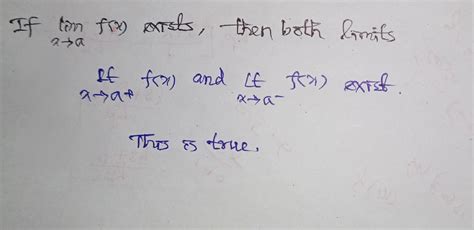 If lim f(x) exists, then both limits
x→a
lt f(x) and lt f(x) exist.
x→a+ x→a-
This is true.